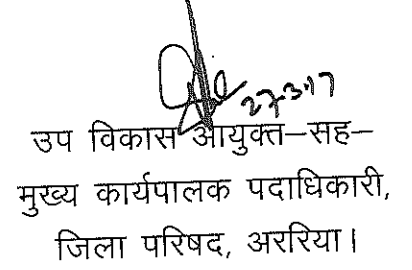 27-3-17
उप विकास आयुक्त–सह–
मुख्य कार्यपालक पदाधिकारी,
जिला परिषद, अररिया।